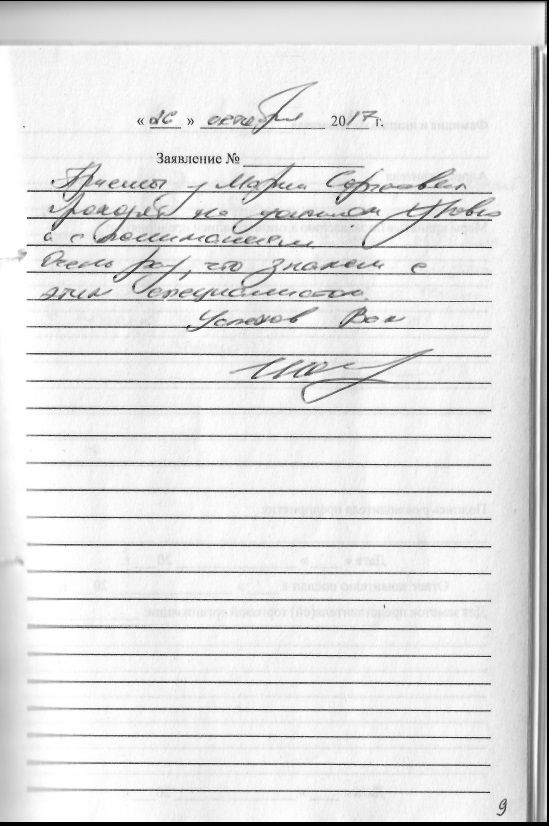 « 26 » октября 2017 г.
Заявление №
Приемы у Марии Сергеевны
проходят на уровне
и с пониманием
Очень рад, что знаком с
этим специалистом
Успехов Вам
9